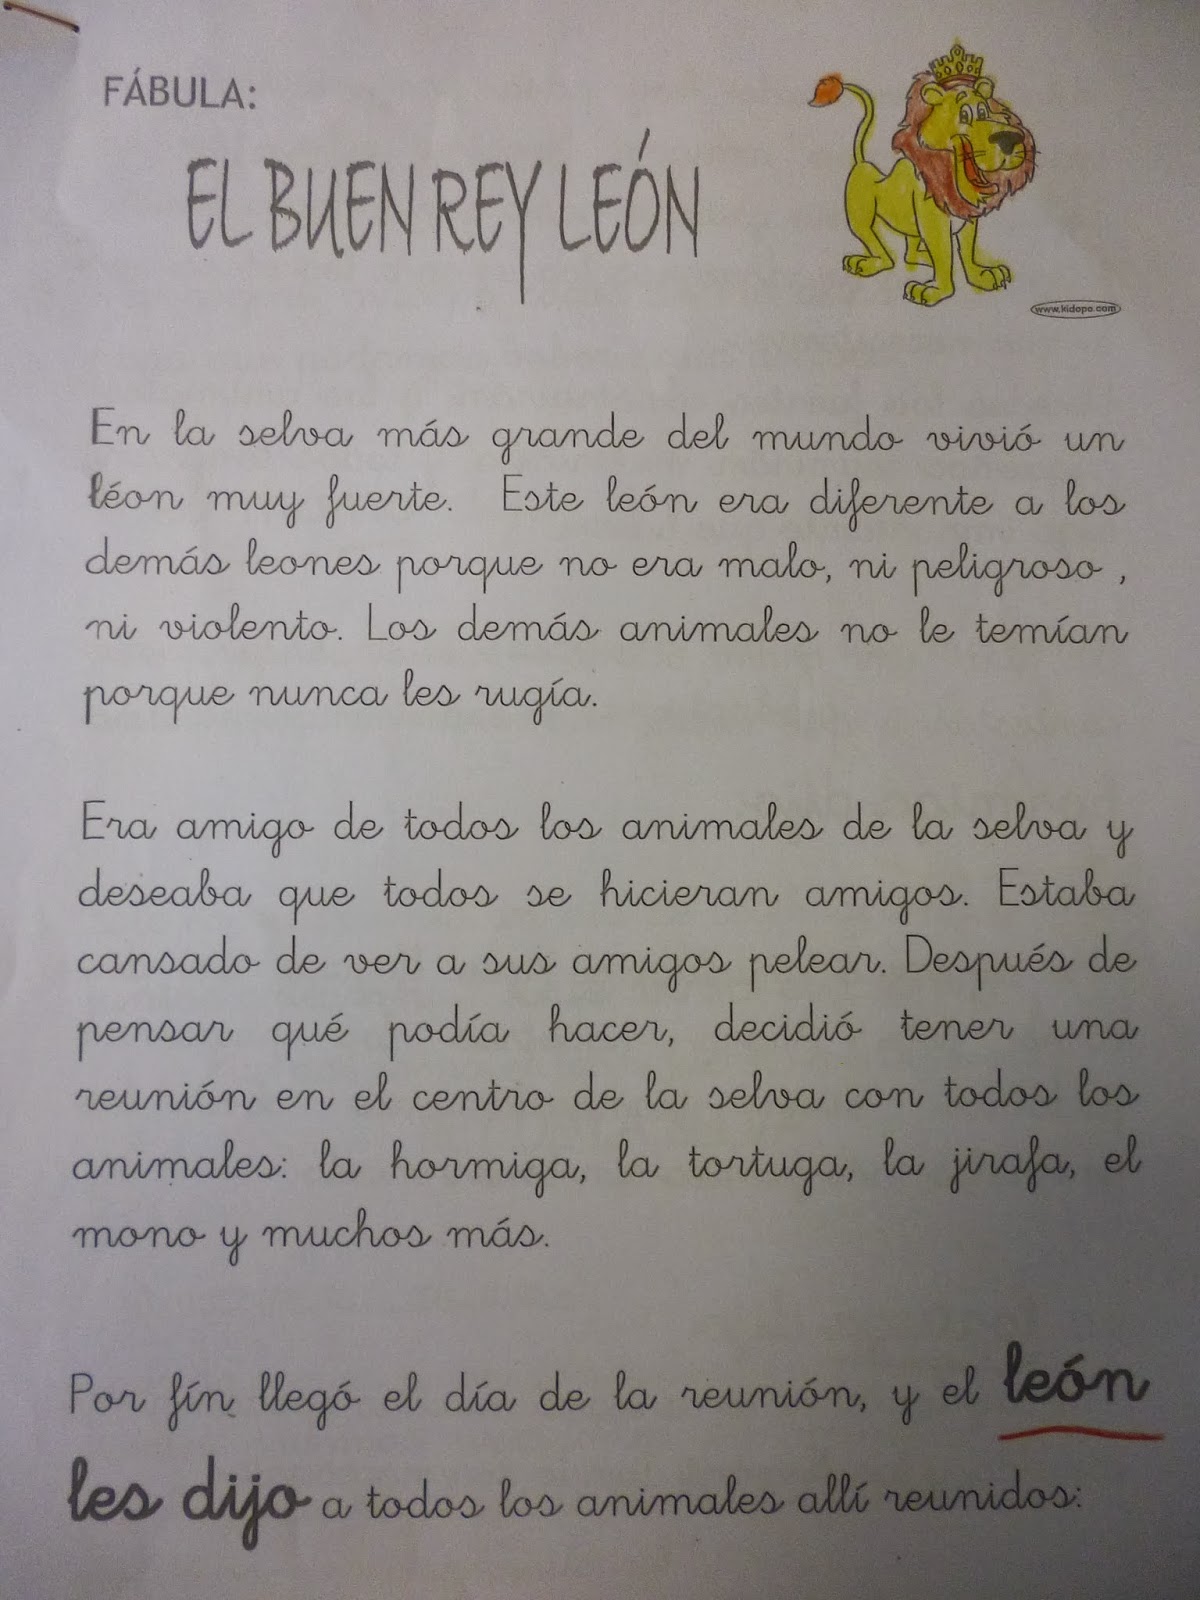 FÁBULA:
EL BUEN REY LEÓN
www.kidopo.com
En la selva más grande del mundo vivió un
léon muy fuerte. Este león era diferente a los
demás leones porque no era malo, ni peligroso ,
ni violento. Los demás animales no le temían
porque nunca les rugía.
Era amigo de todos los animales de la selva y
deseaba que todos se hicieran amigos. Estaba
cansado de ver a sus amigos pelear. Después de
pensar qué podía hacer, decidió tener una
reunión en el centro de la selva con todos los
animales: la hormiga, la tortuga, la jirafa, el
mono y muchos más.
Por fín llegó el día de la reunión, y el león
les dijo a todos los animales allí reunidos: